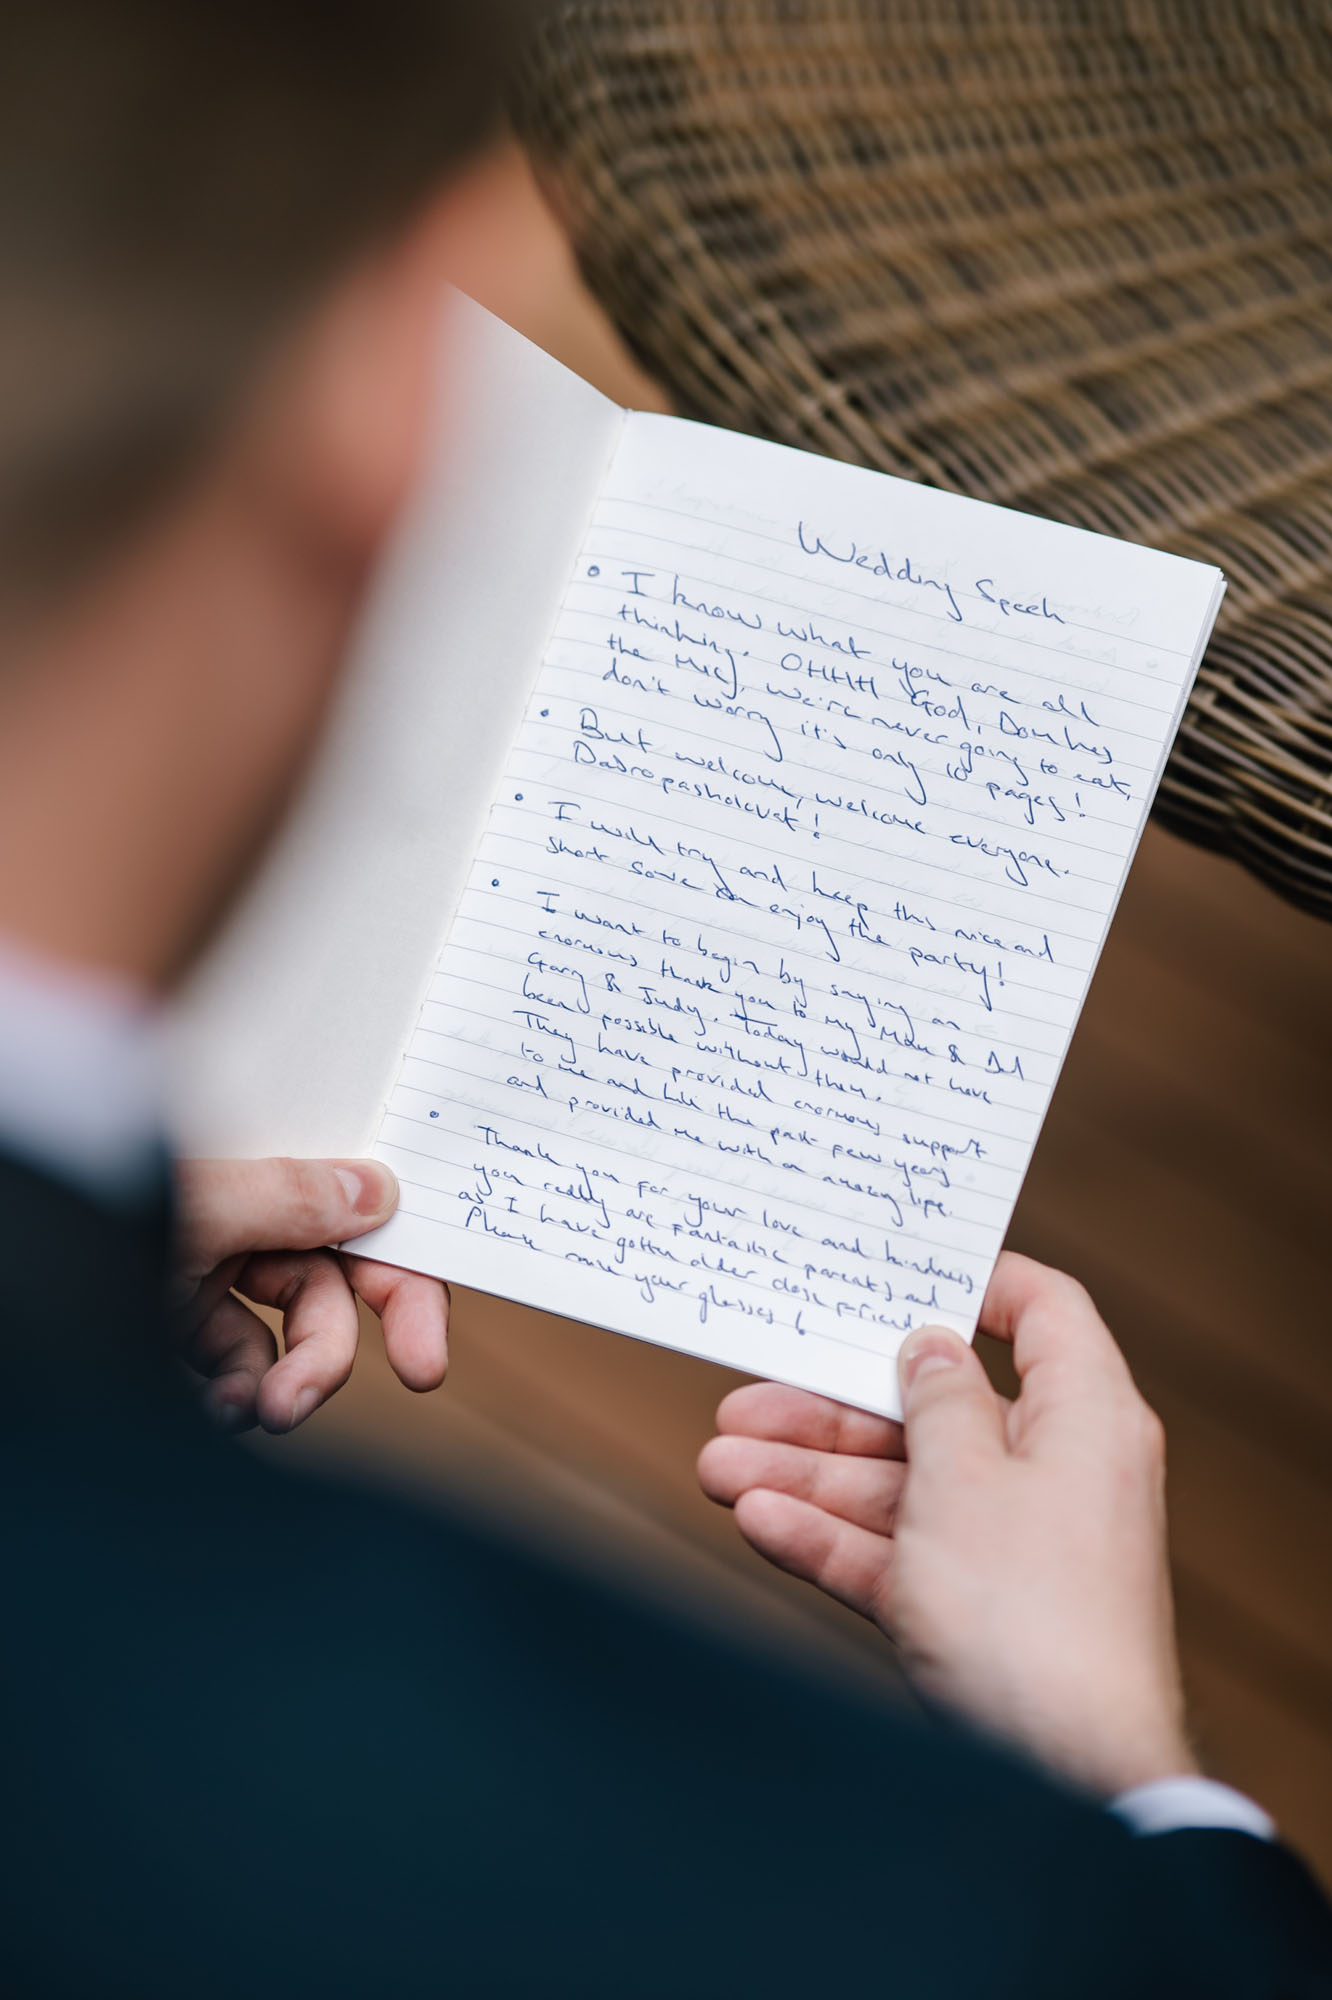 Wedding Speech
• I know what you are all
thinking. OHHHH God, Dom has
the Mic, we're never going to eat,
don't worry it's only 10 pages!
• But welcome, welcome everyone.
Dobro pashalevat!
• I will try and keep this nice and
short so we can enjoy the party!
• I want to begin by saying an
enormous thank you to my Mum & Dad
Gary & Judy. Today would not have
been possible without them.
They have provided enormous support
to me and the past few years
and provided me with an amazing life.
• Thank you for your love and kindness
you really are fantastic parents and
as I have gotten older close friends
Please raise your glasses!